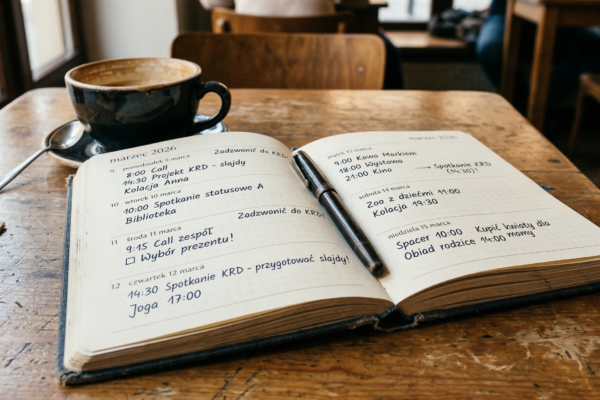 marzec 2026
9 poniedziałek 9 marca Zadzwonić do KRD!
8:00 Call
14:30 Projekt KRD - slajdy
Kolacja Anna
10 wtorek 10 marca
10:00 Spotkanie statusowe A
Biblioteka
Zadzwonić do KRD!
11 środa 11 marca
9:15 Call zespół
☐ Wybór prezentu!
12 czwartek 12 marca
14:30 Spotkanie KRD - przygotować slajdy!
Joga 17:00
marzec 2026
piątek 13 marca
9:00 Kawa Markiem
18:00 Wystawa → Spotkanie KRD
21:00 Kino (14:30)?
sobota 14 marca
Zoo z dziećmi 11:00
Kolacja 19:30
niedziela 15 marca
Spacer 10:00 Kupić kwiaty dla
Obiad rodzice 14:00 mamy